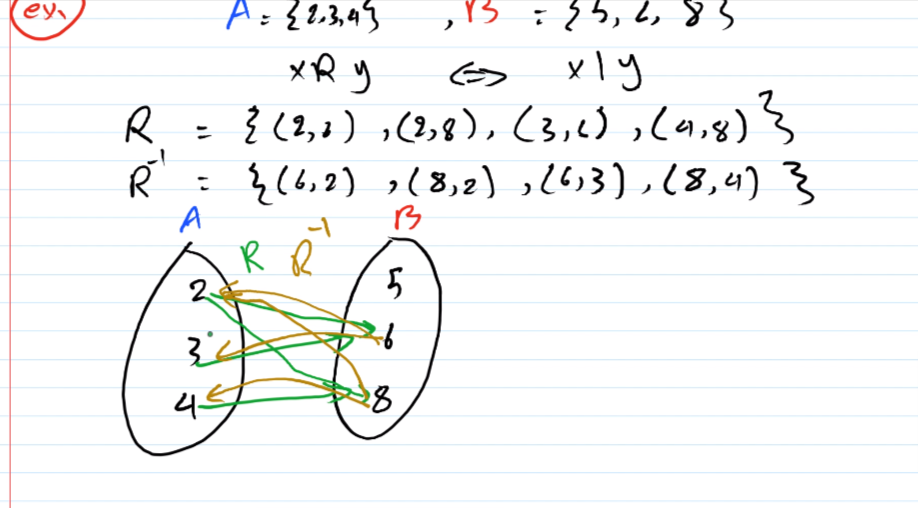 ex.
A = {2,3,4} , B = {5, 6, 8}
x R y <=> x | y
R = {(2,6) ,(2,8), (3,6) ,(4,8)}
R⁻¹ = {(6,2) ,(8,2) ,(6,3) ,(8,4)}
A B
R R⁻¹
2 5
3 6
4 8